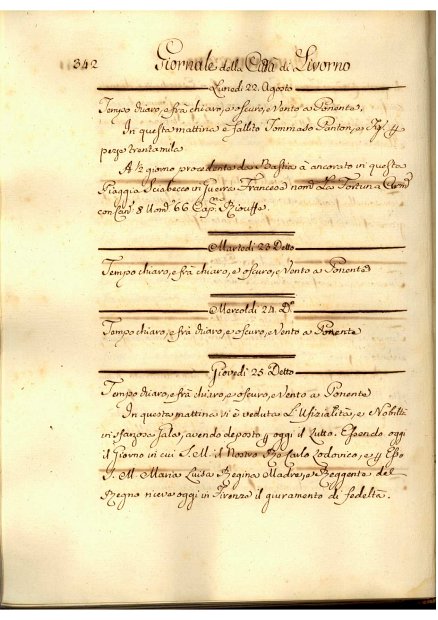 342 Giornale della Città di Livorno
Lunedi 22. Agosto
Tempo chiaro, e frà chiaro, e oscuro, e Vento a Ponente.
In questa mattina è fallito Tommaso Panton, e Figº p
pezze trentamila
A ½ giorno procedente da Bastia à ancorato in questa
Piaggia Sciabecco in Guerra Francese nomº La Fortuna Armº
con Canº 8 Uomº 66 Capnº Riouffe
Martedì 23 Detto
Tempo chiaro, e frà chiaro, e oscuro, e Vento a Ponente
Mercoldì 24. Dº
Tempo chiaro, e frà chiaro, e oscuro, e Vento a Ponente
Giovedì 25 Detto
Tempo chiaro, e frà chiaro, e oscuro, e Vento a Ponente
In questa mattina si è veduta L'Ufizialità, e Nobiltà
in sfarzosa Gala, avendo deposto p oggi il Lutto. Essendo oggi
il Giorno in cui S. M. il Nostro Rè Carlo Lodovico, e p Esso
S. M. Maria Luisa Regina Madre, e Reggente del
Regno riceve oggi in Firenze il giuramento di fedeltà.